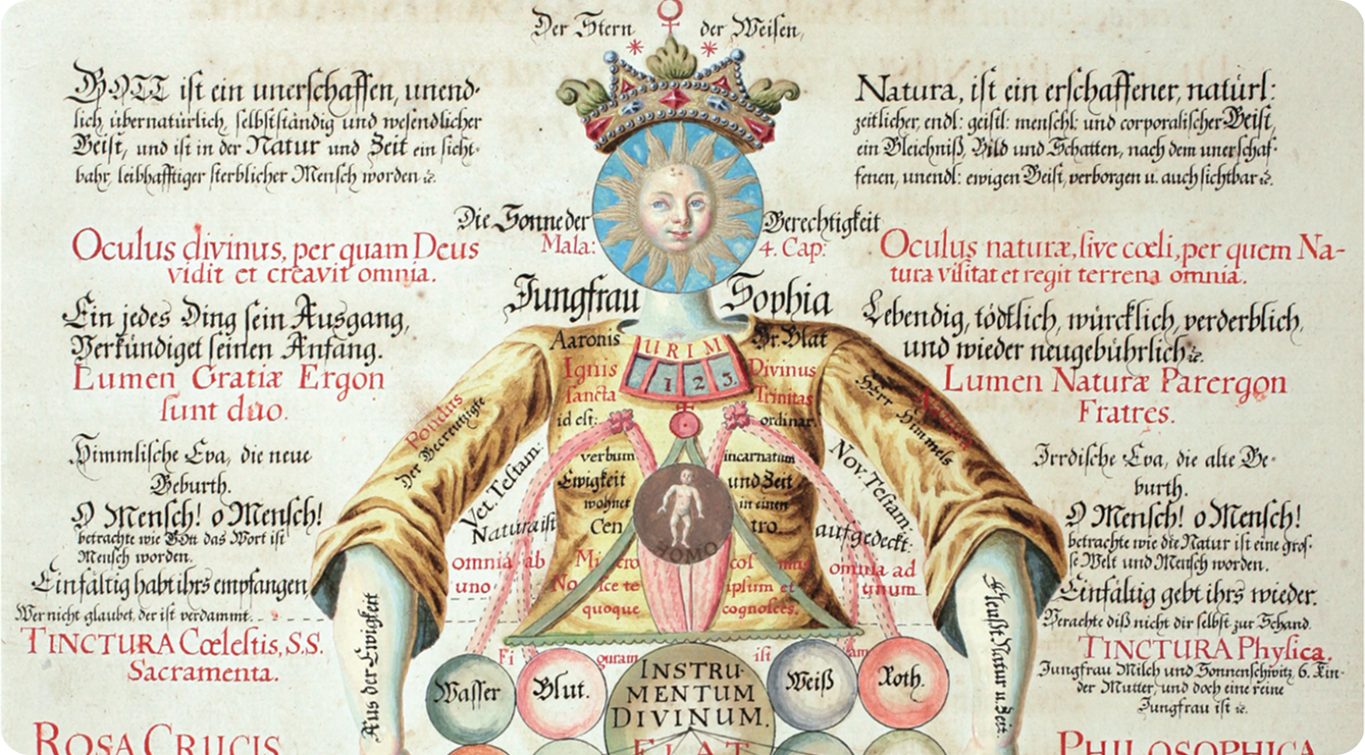 Der Stern der Weisen,
GOTT ist ein unerschaffen, unend-
lich, übernatürlich, selbstständig und wesendlicher
Geist, und ist in der Natur und Zeit ein sicht-
bahr, leibhafftiger sterblicher Mensch worden ꝛc.
Natura, ist ein erschaffener, natürl:
zeitlicher, endl: geistl: menschl: und corporalischer Geist,
ein Gleichniß, Bild und Schatten, nach dem unerschaf-
fenen, unendl: ewigen Geist, verborgen u. auch sichtbar ꝛc.
Die Sonne der Gerechtigkeit
Mala: 4. Cap:
Oculus divinus, per quam Deus
vidit et creavit omnia.
Oculus naturæ, sive cœli, per quem Na-
tura visitat et regit terrena omnia.
Jungfrau Sophia
Ein jedes Ding sein Ausgang,
Verkündiget seinen Anfang.
Lumen Gratiæ Ergon
sunt duo.
Lebendig, tödtlich, würcklich, verderblich,
und wieder neugebührlich ꝛc.
Lumen Naturæ Parergon
Fratres.
Himmlische Eva, die neue
Geburth.
O Mensch! o Mensch!
betrachte wie Gott das Wort ist
Mensch worden.
Einfältig habt ihrs empfangen,
Wer nicht glaubet, der ist verdammt.
TINCTURA Cœlestis, S.S.
Sacramenta.
ROSA CRUCIS
Irrdische Eva, die alte Ge-
burth.
O Mensch! o Mensch!
betrachte wie die Natur ist eine gros-
se Welt und Mensch worden.
Einfältig gebt ihrs wieder.
Verachte diß nicht dir selbst zur Schand.
TINCTURA Physica.
Jungfrau Milch und Sonnenschwitz, 6. Kin-
der Mutter, und doch eine reine
Jungfrau ist ꝛc.
PHILOSOPHICA
Aaronis Br. Blat
URIM
1 2 3.
Ignis Divinus
sancta Trinitas
id est: ordinar.
verbum incarnatum
Ewigkeit und Zeit
wohnet in einen
Cen tro.
HOMO
Micro cosmus
Nosce te ipsum et
quoque cognosces.
Pondus
Der Gerechtigkeit
Herr Himmels
Vet. Testam:
Nov. Testam:
Natura ist
aufgedeckt:
omnia ab
uno
omnia ad
unum
Figuram isti
Wasser
Blut.
INSTRU-
MENTUM
DIVINUM.
FIAT
Weiß
Roth.
Aus der Ewigkeit
Fleußt Natur u. Zeit.